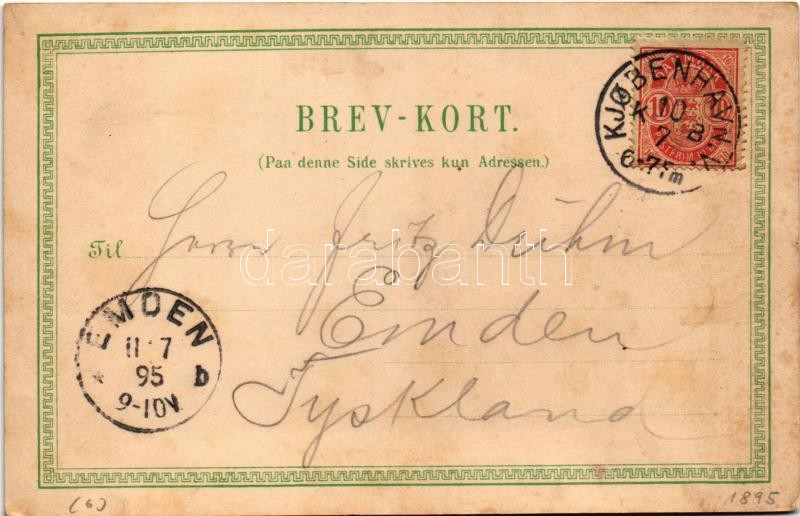 BREV-KORT.
(Paa denne Side skrives kun Adressen.)
KJØBENHAVN
K 10 B
7
6-7 Fm
10
Til Herrn Fritz Duhm
Emden
Tyskland
darabanth
EMDEN
11 7
95
* b
9-10V
(6)
1895